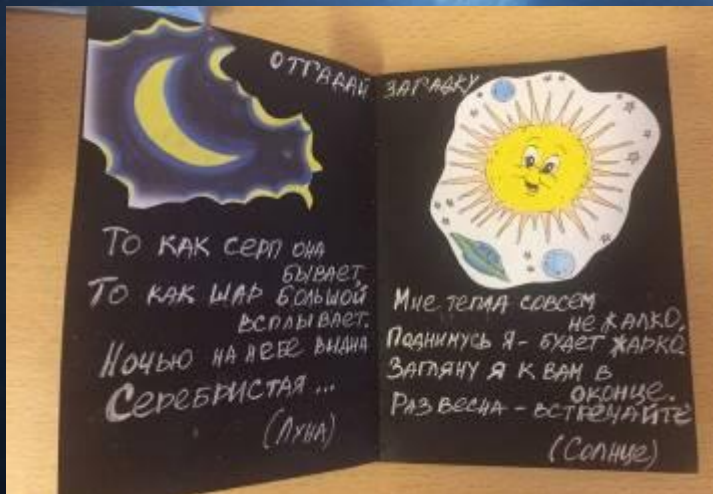 ОТГАДАЙ ЗАГАДКУ
ТО КАК СЕРП ОНА
БЫВАЕТ,
ТО КАК ШАР БОЛЬШОЙ
ВСПЛЫВАЕТ.
НОЧЬЮ НА НЕБЕ ВИДНА
СЕРЕБРИСТАЯ...
(ЛУНА)
МНЕ ТЕПЛА СОВСЕМ
НЕ ЖАЛКО,
ПОДНИМУСЬ Я - БУДЕТ ЖАРКО.
ЗАГЛЯНУ Я К ВАМ В
ОКОНЦЕ.
РАЗ ВЕСНА - ВСТРЕЧАЙТЕ
(СОЛНЦЕ)